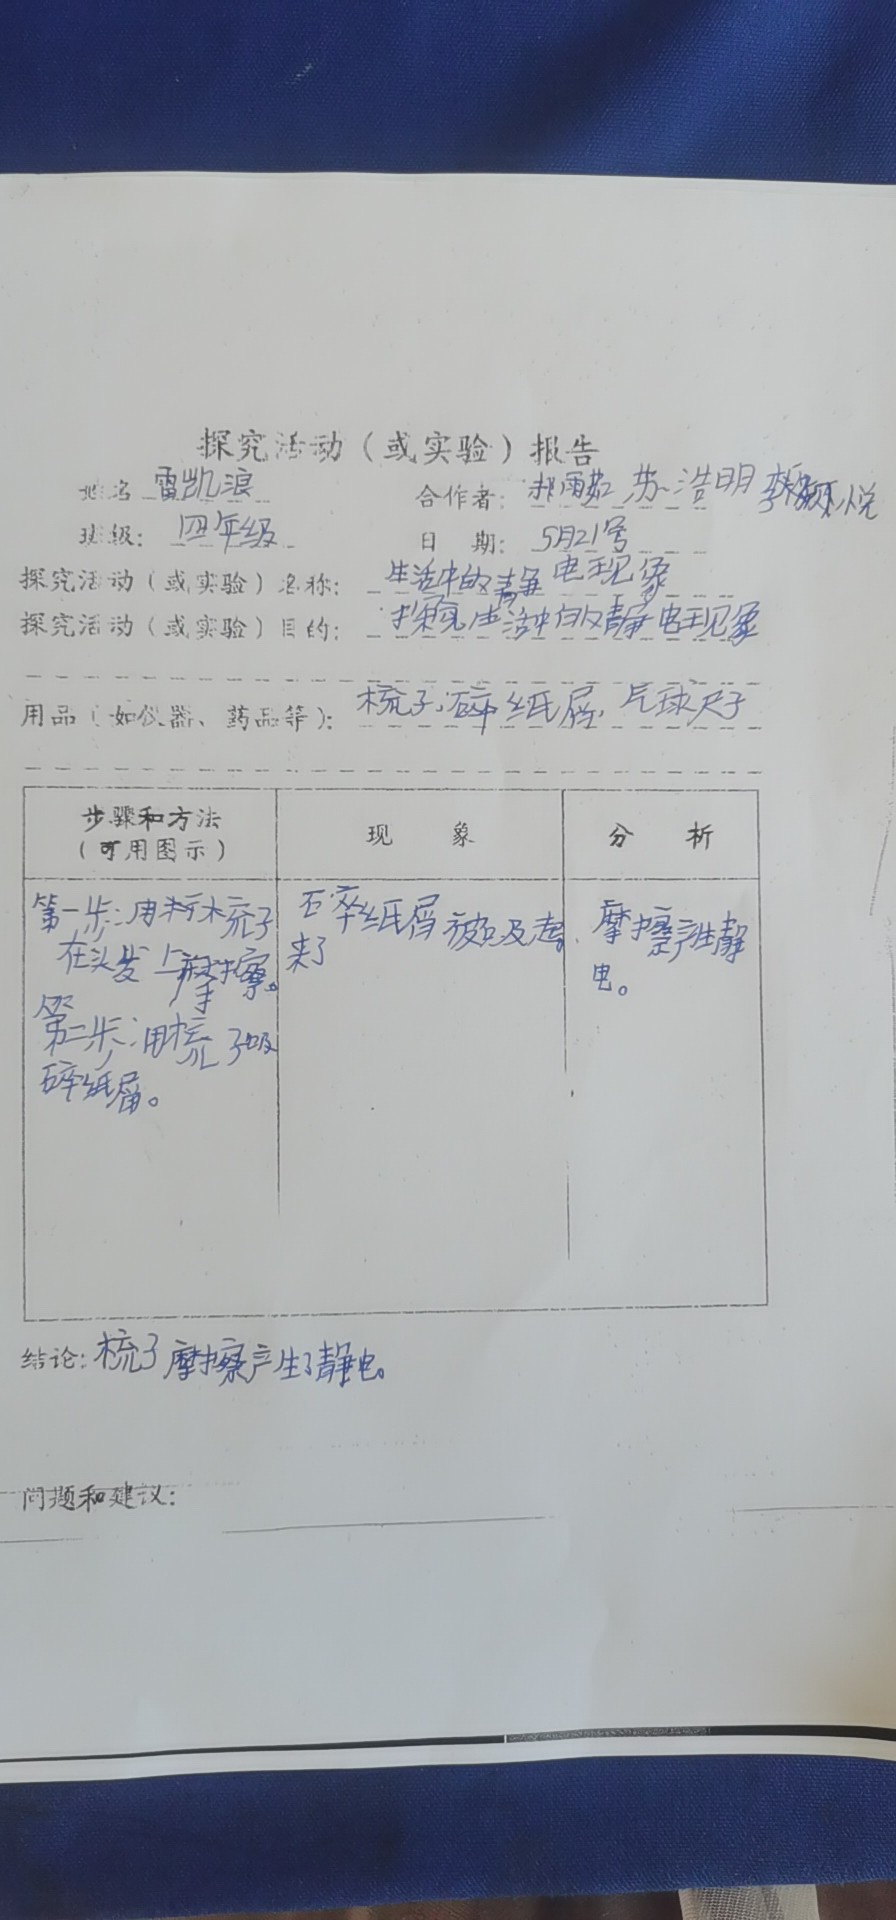 探究活动（或实验）报告
姓名 雷凯浪 合作者: 郝雨茹 苏浩明 李颖悦
班级: 四年级 日 期: 5月21号
探究活动（或实验）名称: 生活中的静电现象
探究活动（或实验）目的: 探究生活中的静电现象
用品（如仪器、药品等）: 梳子,碎纸屑,气球尺子
步骤和方法
（可用图示）
现 象
分 析
第一步:用梳子
在头发上摩擦。
第二步:用梳子吸
碎纸屑。
碎纸屑被吸起
来了
摩擦产生静
电。
结论: 梳子摩擦产生了静电。
问题和建议: